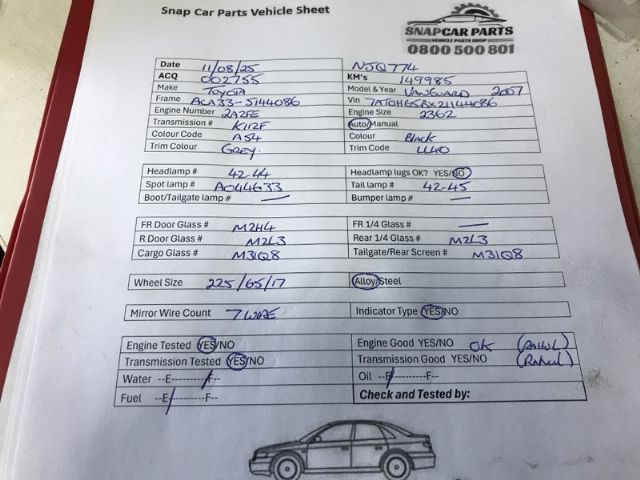 Snap Car Parts Vehicle Sheet
SNAPCAR PARTS
VEHICLE PARTS SHOP
0800 500 801
Date 11/08/25 NJQ774
ACQ 002755 KM's 149985
Make TOYOTA Model & Year VANGUARD 2007
Frame ACA33-5144086 Vin 7AT0H65RX21144086
Engine Number 2AZFE Engine Size 2362
Transmission # K112F Auto/Manual
Colour Code A54 Colour Black
Trim Colour GREY. Trim Code LU40
Headlamp # 42-44 Headlamp lugs OK? YES/NO
Spot lamp # A044G33 Tail lamp # 42-45
Boot/Tailgate lamp # — Bumper lamp # —
FR Door Glass # M2H4 FR 1/4 Glass # —
R Door Glass # M2L3 Rear 1/4 Glass # M2L3
Cargo Glass # M31Q8 Tailgate/Rear Screen # M31Q8
Wheel Size 225/65/17 Alloy/Steel
Mirror Wire Count 7 WIRE Indicator Type YES/NO
Engine Tested YES/NO Engine Good YES/NO OK
Transmission Tested YES/NO Transmission Good YES/NO (Rahul)
Water --E----------F-- Oil --E----------F--
Fuel --E----------F-- Check and Tested by: